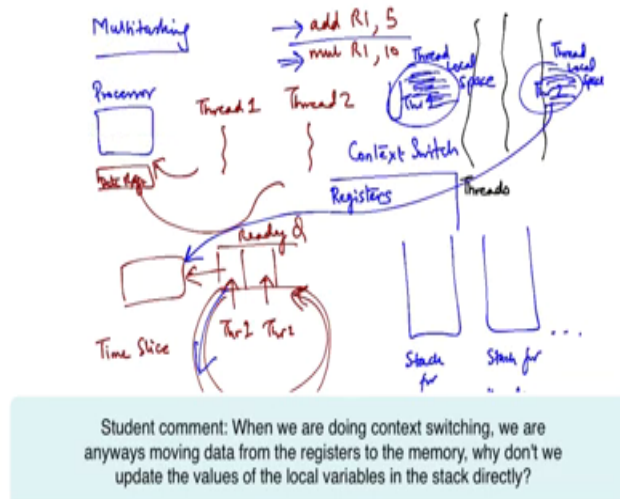 Multitasking
→ add R1, 5
→ mul R1, 10
Thread Local Space
Thr 1
Thread Local Space
Processor
Thread 1
Thread 2
Context Switch
Registers
Threads
Ready Q
Thr 1 Thr 2
Time Slice
Stack for
Stack for
...
Student comment: When we are doing context switching, we are
anyways moving data from the registers to the memory, why don't we
update the values of the local variables in the stack directly?